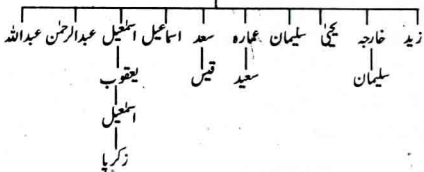 زید خارجہ یحییٰ سلیمان عمارہ سعد اسماعیل اسمٰعیل عبدالرحمٰن عبداللہ
سلیمان سعید قیس یعقوب
اسمٰعیل
زکریا